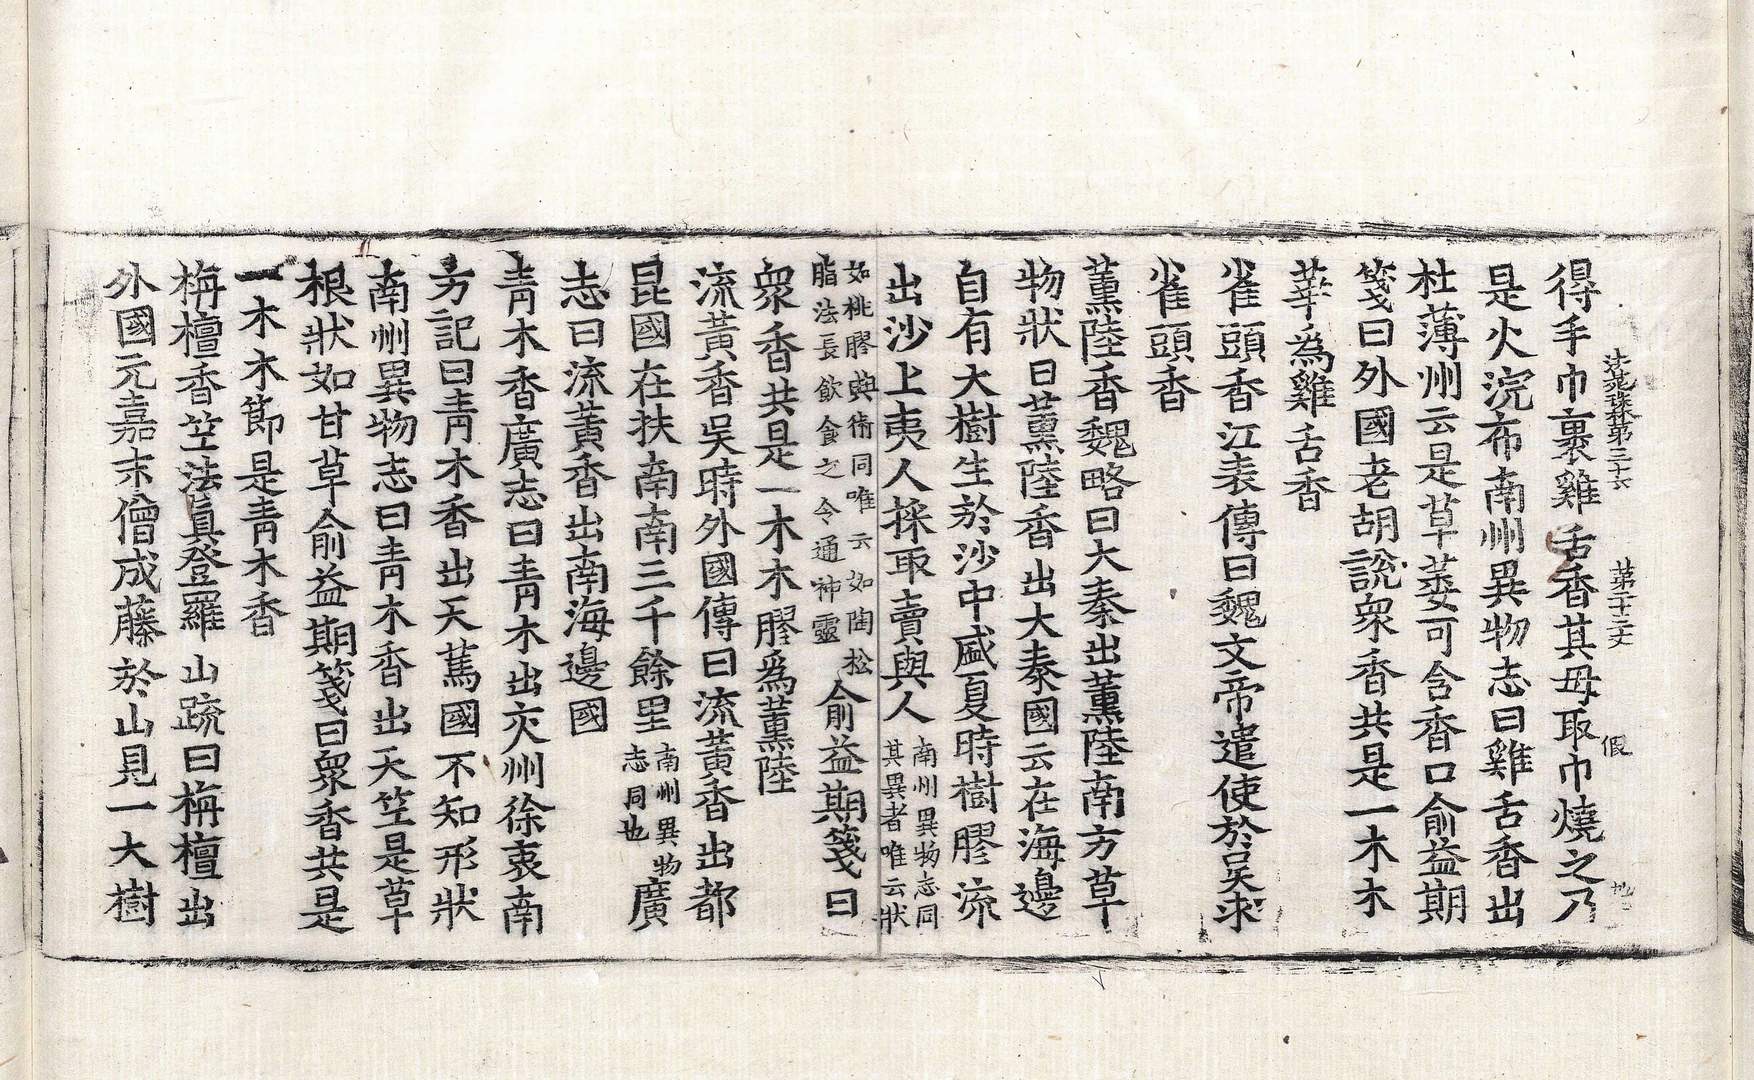 法苑珠林第三十六　第二十二丈　假　地
得手巾裹雞舌香其母取巾燒之乃
是火浣布南州異物志曰雞舌香出
杜薄州云是草萎可含香口俞益期
箋曰外國老胡說衆香共是一木木
華爲雞舌香
雀頭香江表傳曰魏文帝遣使於吳求
雀頭香
薰陸香魏略曰大秦出薰陸南方草
物狀曰薰陸香出大秦國云在海邊
自有大樹生於沙中盛夏時樹膠流
出沙上夷人採取賣與人南州異物志同其異者唯云狀
如桃膠典術同唯云如陶松脂法長飲食之令通神靈俞益期箋曰
衆香共是一木木膠爲薰陸
流黃香吳時外國傳曰流黃香出都
昆國在扶南南三千餘里南州異物志同也廣
志曰流黃香出南海邊國
靑木香廣志曰靑木出交州徐衷南
方記曰靑木香出天篤國不知形狀
南州異物志曰靑木香出天竺是草
根狀如甘草俞益期箋曰衆香共是
一木木節是靑木香
栴檀香竺法眞登羅山疏曰栴檀出
外國元嘉末僧成藤於山見一大樹